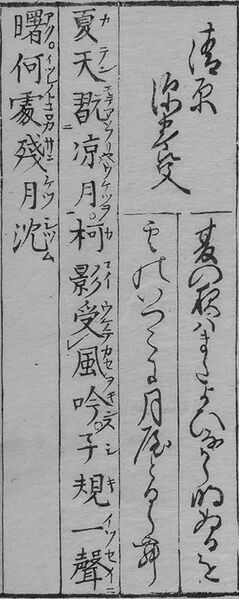 清原
深養父
夏の夜はまたよひなから明ぬるを
雲のいつこに月やとるらん
夏天翫涼月。柯影受風吟。子規一聲
曙。何處殘月沈